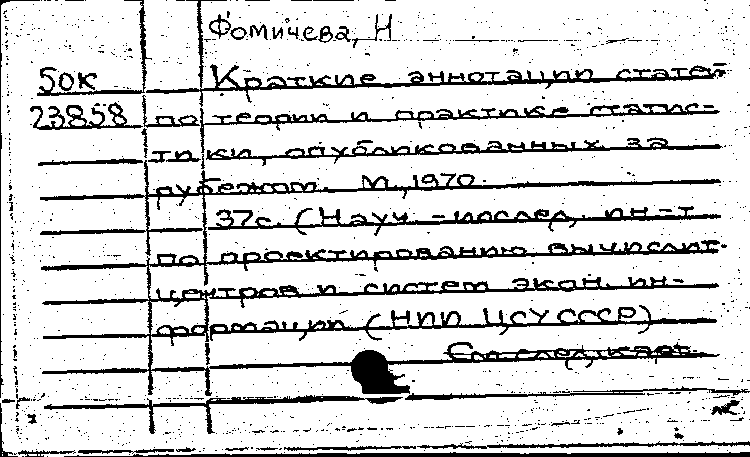 Фомичева, Н
50к Краткие аннотации статей
23858 по теории и практике статис-
тики, опубликованных за
рубежом. М., 1970.
37с. (Науч.-исслед. ин-т
по проектированию вычислит.
центров и систем экон. ин-
формации (НИИ ЦСУ СССР)
См. след. карт.